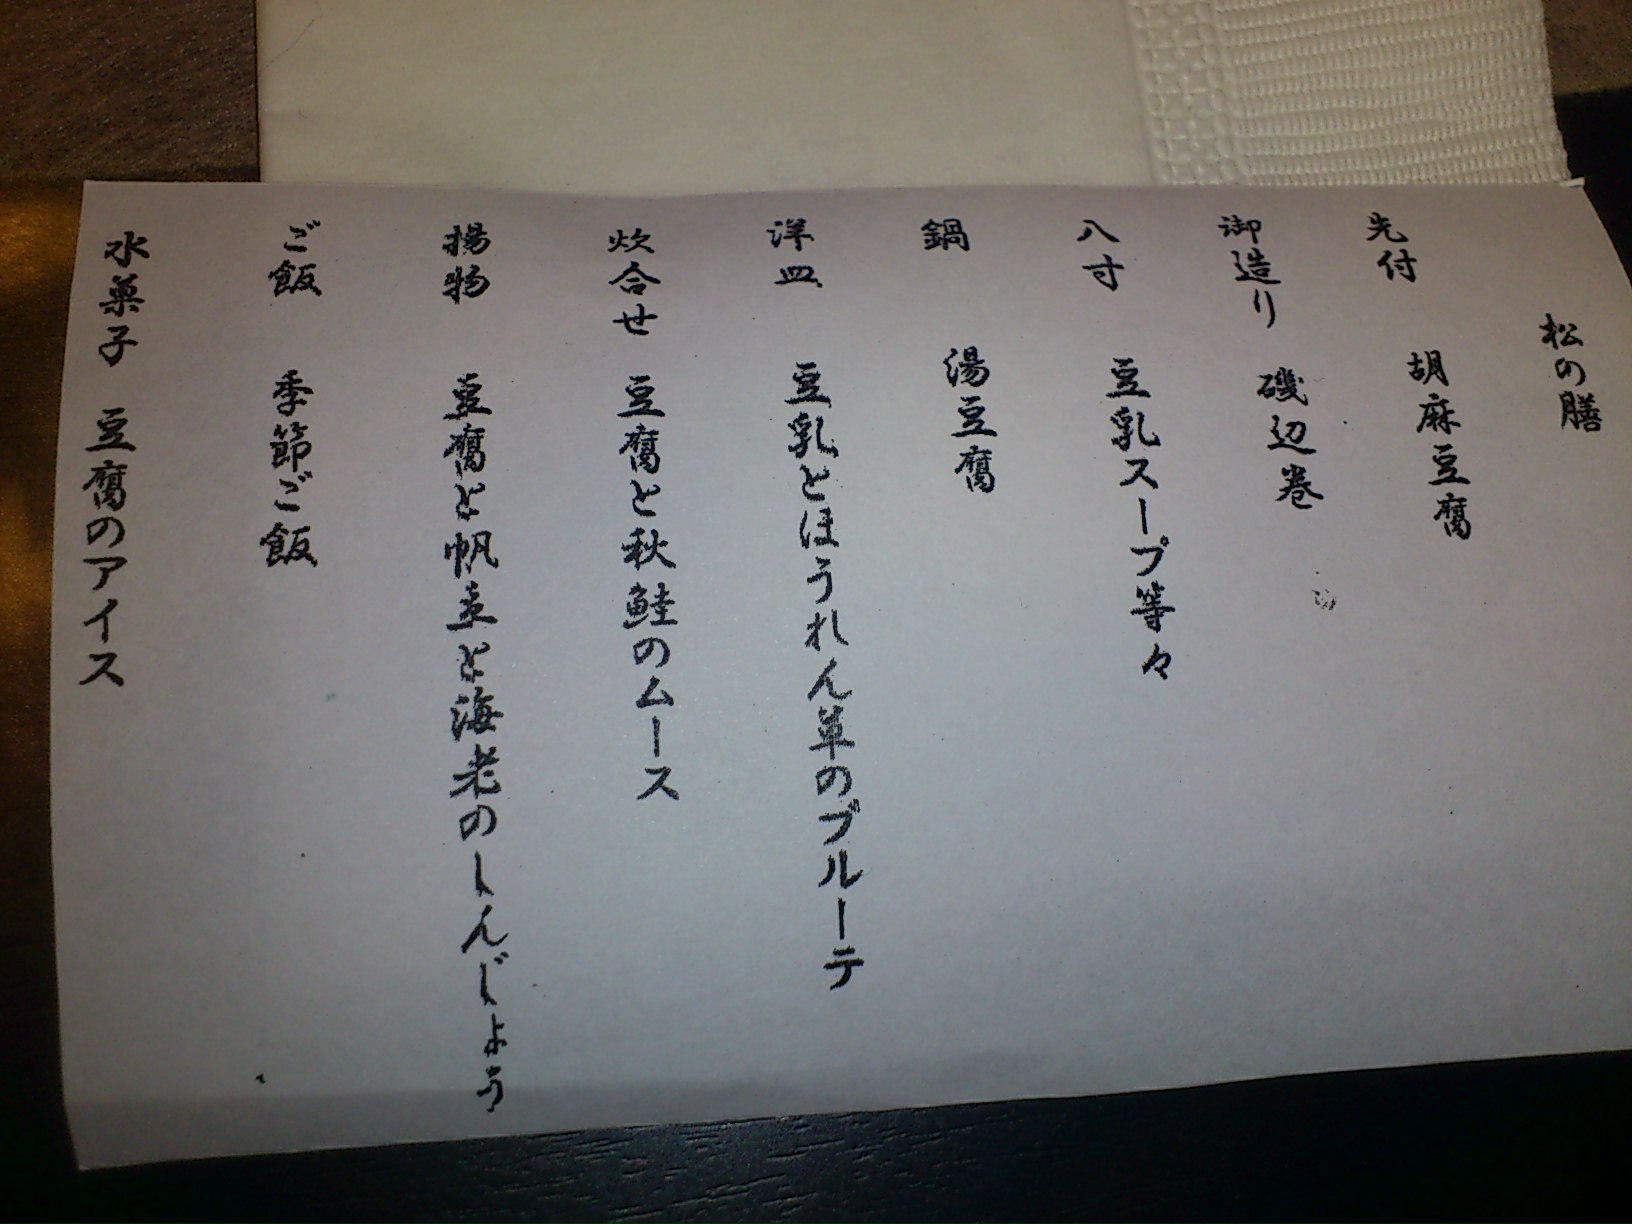 松の膳
先付 胡麻豆腐
御造り 磯辺巻
八寸 豆乳スープ等々
鍋 湯豆腐
洋皿 豆乳とほうれん草のブルーテ
炊合せ 豆腐と秋鮭のムース
揚物 豆腐と帆立と海老のしんじょう
ご飯 季節ご飯
水菓子 豆腐のアイス